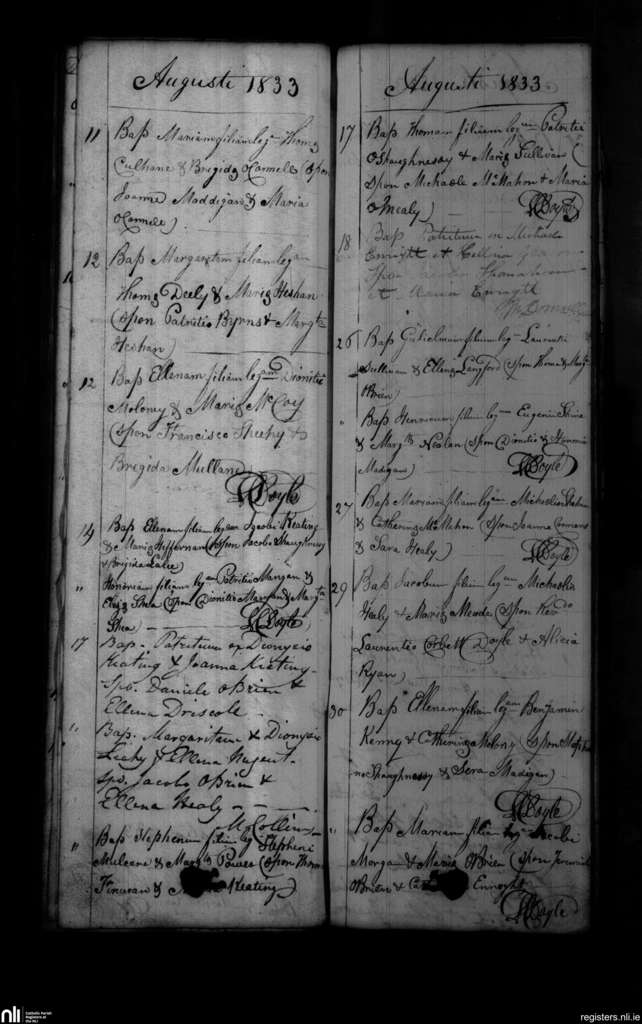 Augusti 1833
11 Baps Mariam filiam leg.m Thoms
Culhane & Brigida OConnele (Spon
Joanne Maddigan & Maria
OConnele)
12 Baps Margaretam filiam leg.am
Thoms Deely & Maria Heshan
(Spon Patritio Byrns & Margta
Heshan)
12 Baps Ellenam filiam leg.am Dionitii
Moloney & Maria McCoy
(Spon Francisco Sheehy &
Brigida Mullane
Boyle
14 Baps Ellenam filiam leg.am Jacobi Keating
& Maria Heffernan (Spon Jacobo Shaughnessy
& Brigida
" Honoriam filiam leg.am Patritii Mangan &
Eliza Shea (Spon Dionitio Mangan & Margta
Shea)
Boyle
17 Bap. Patritium ex Dionysio
Keating & Joanna Keating
Sps. Daniele OBrien &
Ellena Driscole
" Bap. Margaritam & Dionysio
Leahy & Ellena Nugent
Sps. Jacobo OBrien &
Ellena Healy
M Collins
" Baps Stephenum filium leg Stepheni
Mulcere & Marga Power (Spon Thoma
Finucan & Keating)
Augusti 1833
17 Baps Thomam filium leg.um Patritii
OShaughnessy & Maria Sullivan (
Spon Michaele McMahon & Maria
OMealy)
Boyle
18 Baps Patritium
Enright et Ellina
Spon
et Maria Enright
26 Baps Gulielmum filium leg.m Laurentii
Sullivan & Ellena Langford (Spon Thoma & Marg
OBrien)
" Baps Henricum filium leg Eugenii Shine
& Margta Nealan (Spon Dionitio & Honoria
Madigan)
Boyle
27 Baps Mariam filiam leg.am Michaelis
& Catherina McMahon (Spon Joanne
& Sara Healy)
Boyle
29 Baps Jacobum filium leg.um Michaelis
Healy & Maria Meade (Spon Revdo
Laurentio Corbett Doyle & Alicia
Ryan)
30 Baps Ellenam filiam leg.am Benjamin
Kenny & Catherina Molony (Spon Stepha
no Shaughnessy & Sera Madigan)
Boyle
" Baps Mariam filiam leg.am Jacobi
Morgan & Maria OBrien (Spon Jeremia
OBrien & Enright
Boyle
nli
Catholic Parish
Registers at
the NLI
registers.nli.ie